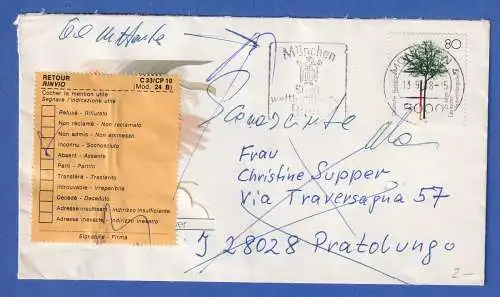 al mittente
80
München
MÜNCHEN
8000
RETOUR C 33/CP 10
RINVIO Mod. 24 B)
Cocher la mention utile
Segnare l'indicazione utile
Refusé - Rifiutato
Non réclamé - Non reclamato
Non admis - Non ammesso
Inconnu - Sconosciuto
Absent - Assente
Parti - Partito
Transféré - Trasferito
Introuvable - Irreperibile
Décédé - Deceduto
Adresse insuffisant - Indirizzo insufficiente
Adresse inexacte - Indirizzo inesatto
Signature - Firma
Frau
Christine Supper
Via Traversagna 57
I 28028 Pratolungo
2.-